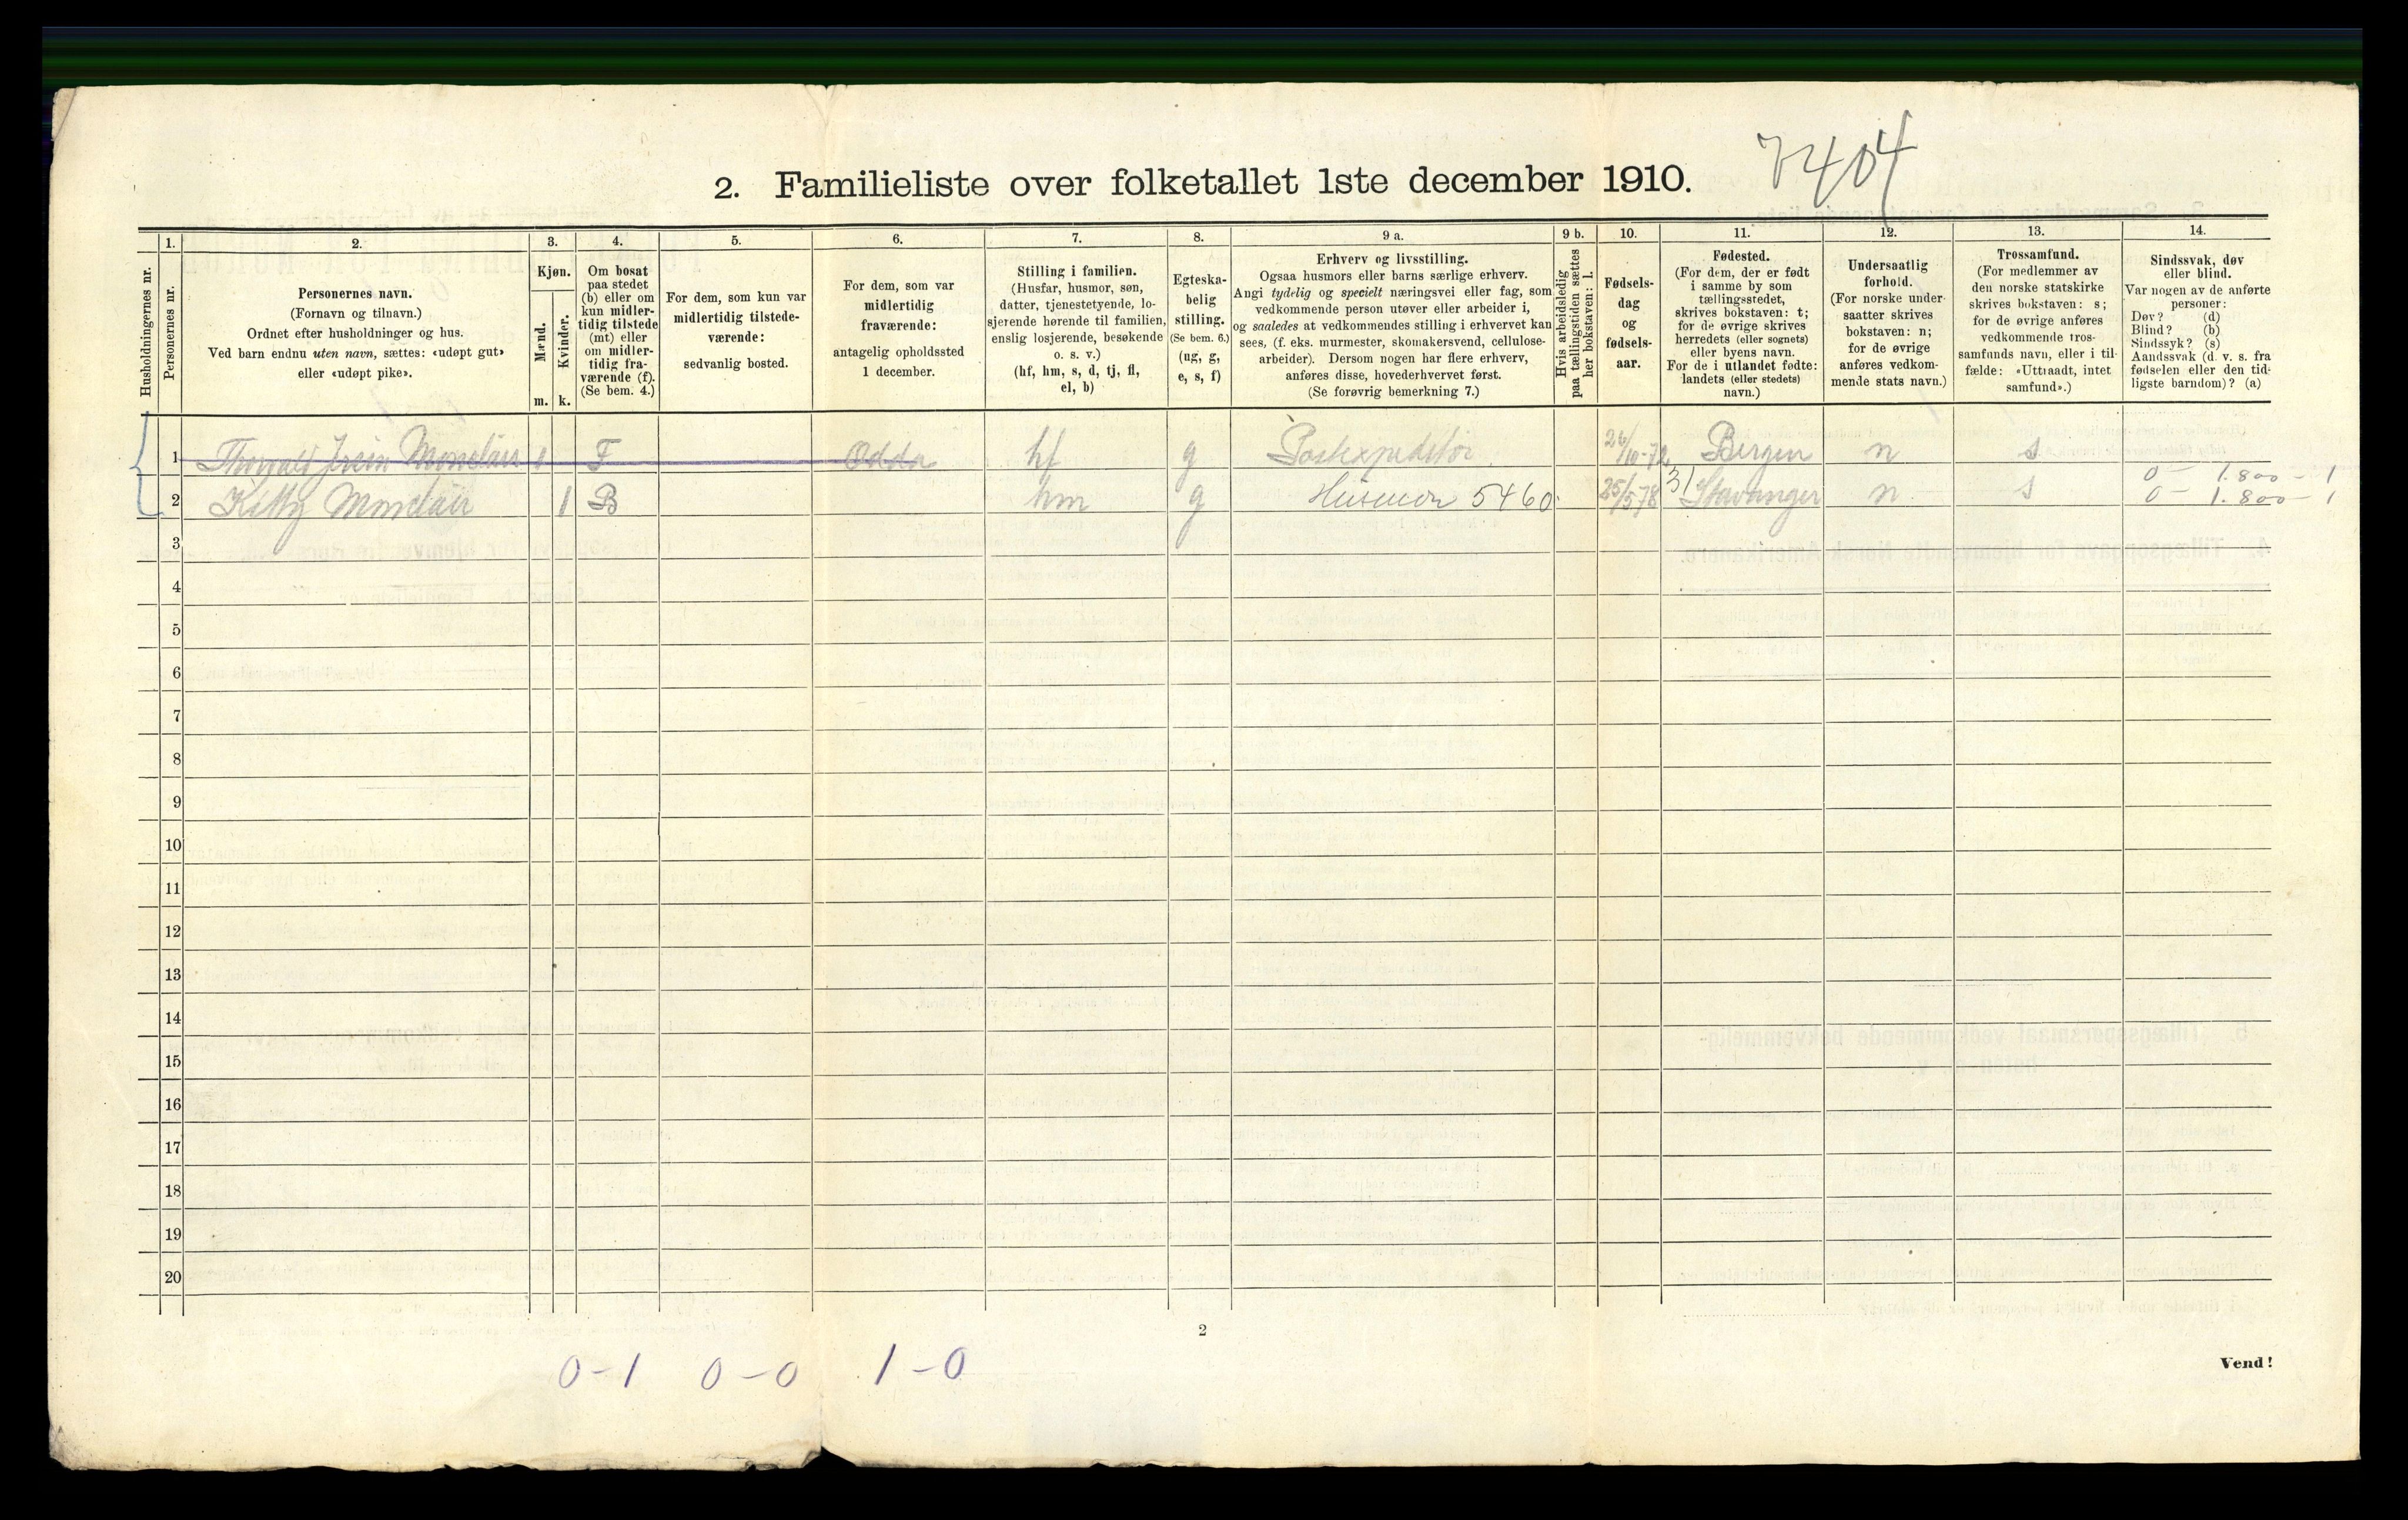 7404
2. Familieliste over folketallet 1ste december 1910.
Husholdningernes nr.
1.
Personernes nr.
2.
Personernes navn.
(Fornavn og tilnavn.)
Ordnet efter husholdninger og hus.
Ved barn endnu uten navn, sættes: «udøpt gut»
eller «udøpt pike».
3.
Kjøn.
Mænd.
Kvinder.
m. k.
4.
Om bosat
paa stedet
(b) eller om
kun midler-
tidig tilstede
(mt) eller
om midler-
tidig fra-
værende (f).
(Se bem. 4.)
5.
For dem, som kun var
midlertidig tilstede-
værende:
sedvanlig bosted.
6.
For dem, som var
midlertidig
fraværende:
antagelig opholdssted
1 december.
7.
Stilling i familien.
(Husfar, husmor, søn,
datter, tjenestetyende, lo-
sjerende hørende til familien,
enslig losjerende, besøkende
o. s. v.)
(hf, hm, s, d, tj, fl,
el, b)
8.
Egteska-
belig
stilling.
(Se bem. 6.)
(ug, g,
e, s, f)
9 a.
Erhverv og livsstilling.
Ogsaa husmors eller barns særlige erhverv.
Angi tydelig og specielt næringsvei eller fag, som
vedkommende person utøver eller arbeider i,
og saaledes at vedkommendes stilling i erhvervet kan
sees, (f. eks. murmester, skomakersvend, cellulose-
arbeider). Dersom nogen har flere erhverv,
anføres disse, hovederhvervet først.
(Se forøvrig bemerkning 7.)
9 b.
Hvis arbeidsledig
paa tællingstiden sættes
her bokstaven: l.
10.
Fødsels-
dag
og
fødsels-
aar.
11.
Fødested.
(For dem, der er født
i samme by som
tællingsstedet,
skrives bokstaven: t;
for de øvrige skrives
herredets (eller sognets)
eller byens navn.
For de i utlandet fødte:
landets (eller stedets)
navn.)
12.
Undersaatlig
forhold.
(For norske under-
saatter skrives
bokstaven: n;
for de øvrige
anføres vedkom-
mende stats navn.)
13.
Trossamfund.
(For medlemmer av
den norske statskirke
skrives bokstaven: s;
for de øvrige anføres
vedkommende tros-
samfunds navn, eller i til-
fælde: «Uttraadt, intet
samfund».)
14.
Sindssvak, døv
eller blind.
Var nogen av de anførte
personer:
Døv? (d)
Blind? (b)
Sindssyk? (s)
Aandssvak (d. v. s. fra
fødselen eller den tid-
ligste barndom)? (a)
1 Monclair 1 F Odda hf g Postexpeditør 26/10-72 Bergen n s 0 - 1.800 - 1
2 Kitty Monclair 1 B hm g Husmor 5460 25/5 78 31 Stavanger n s 0 - 1.800 - 1
3
4
5
6
7
8
9
10
11
12
13
14
15
16
17
18
19
20
2
Vend!
0-1 0-0 1-0